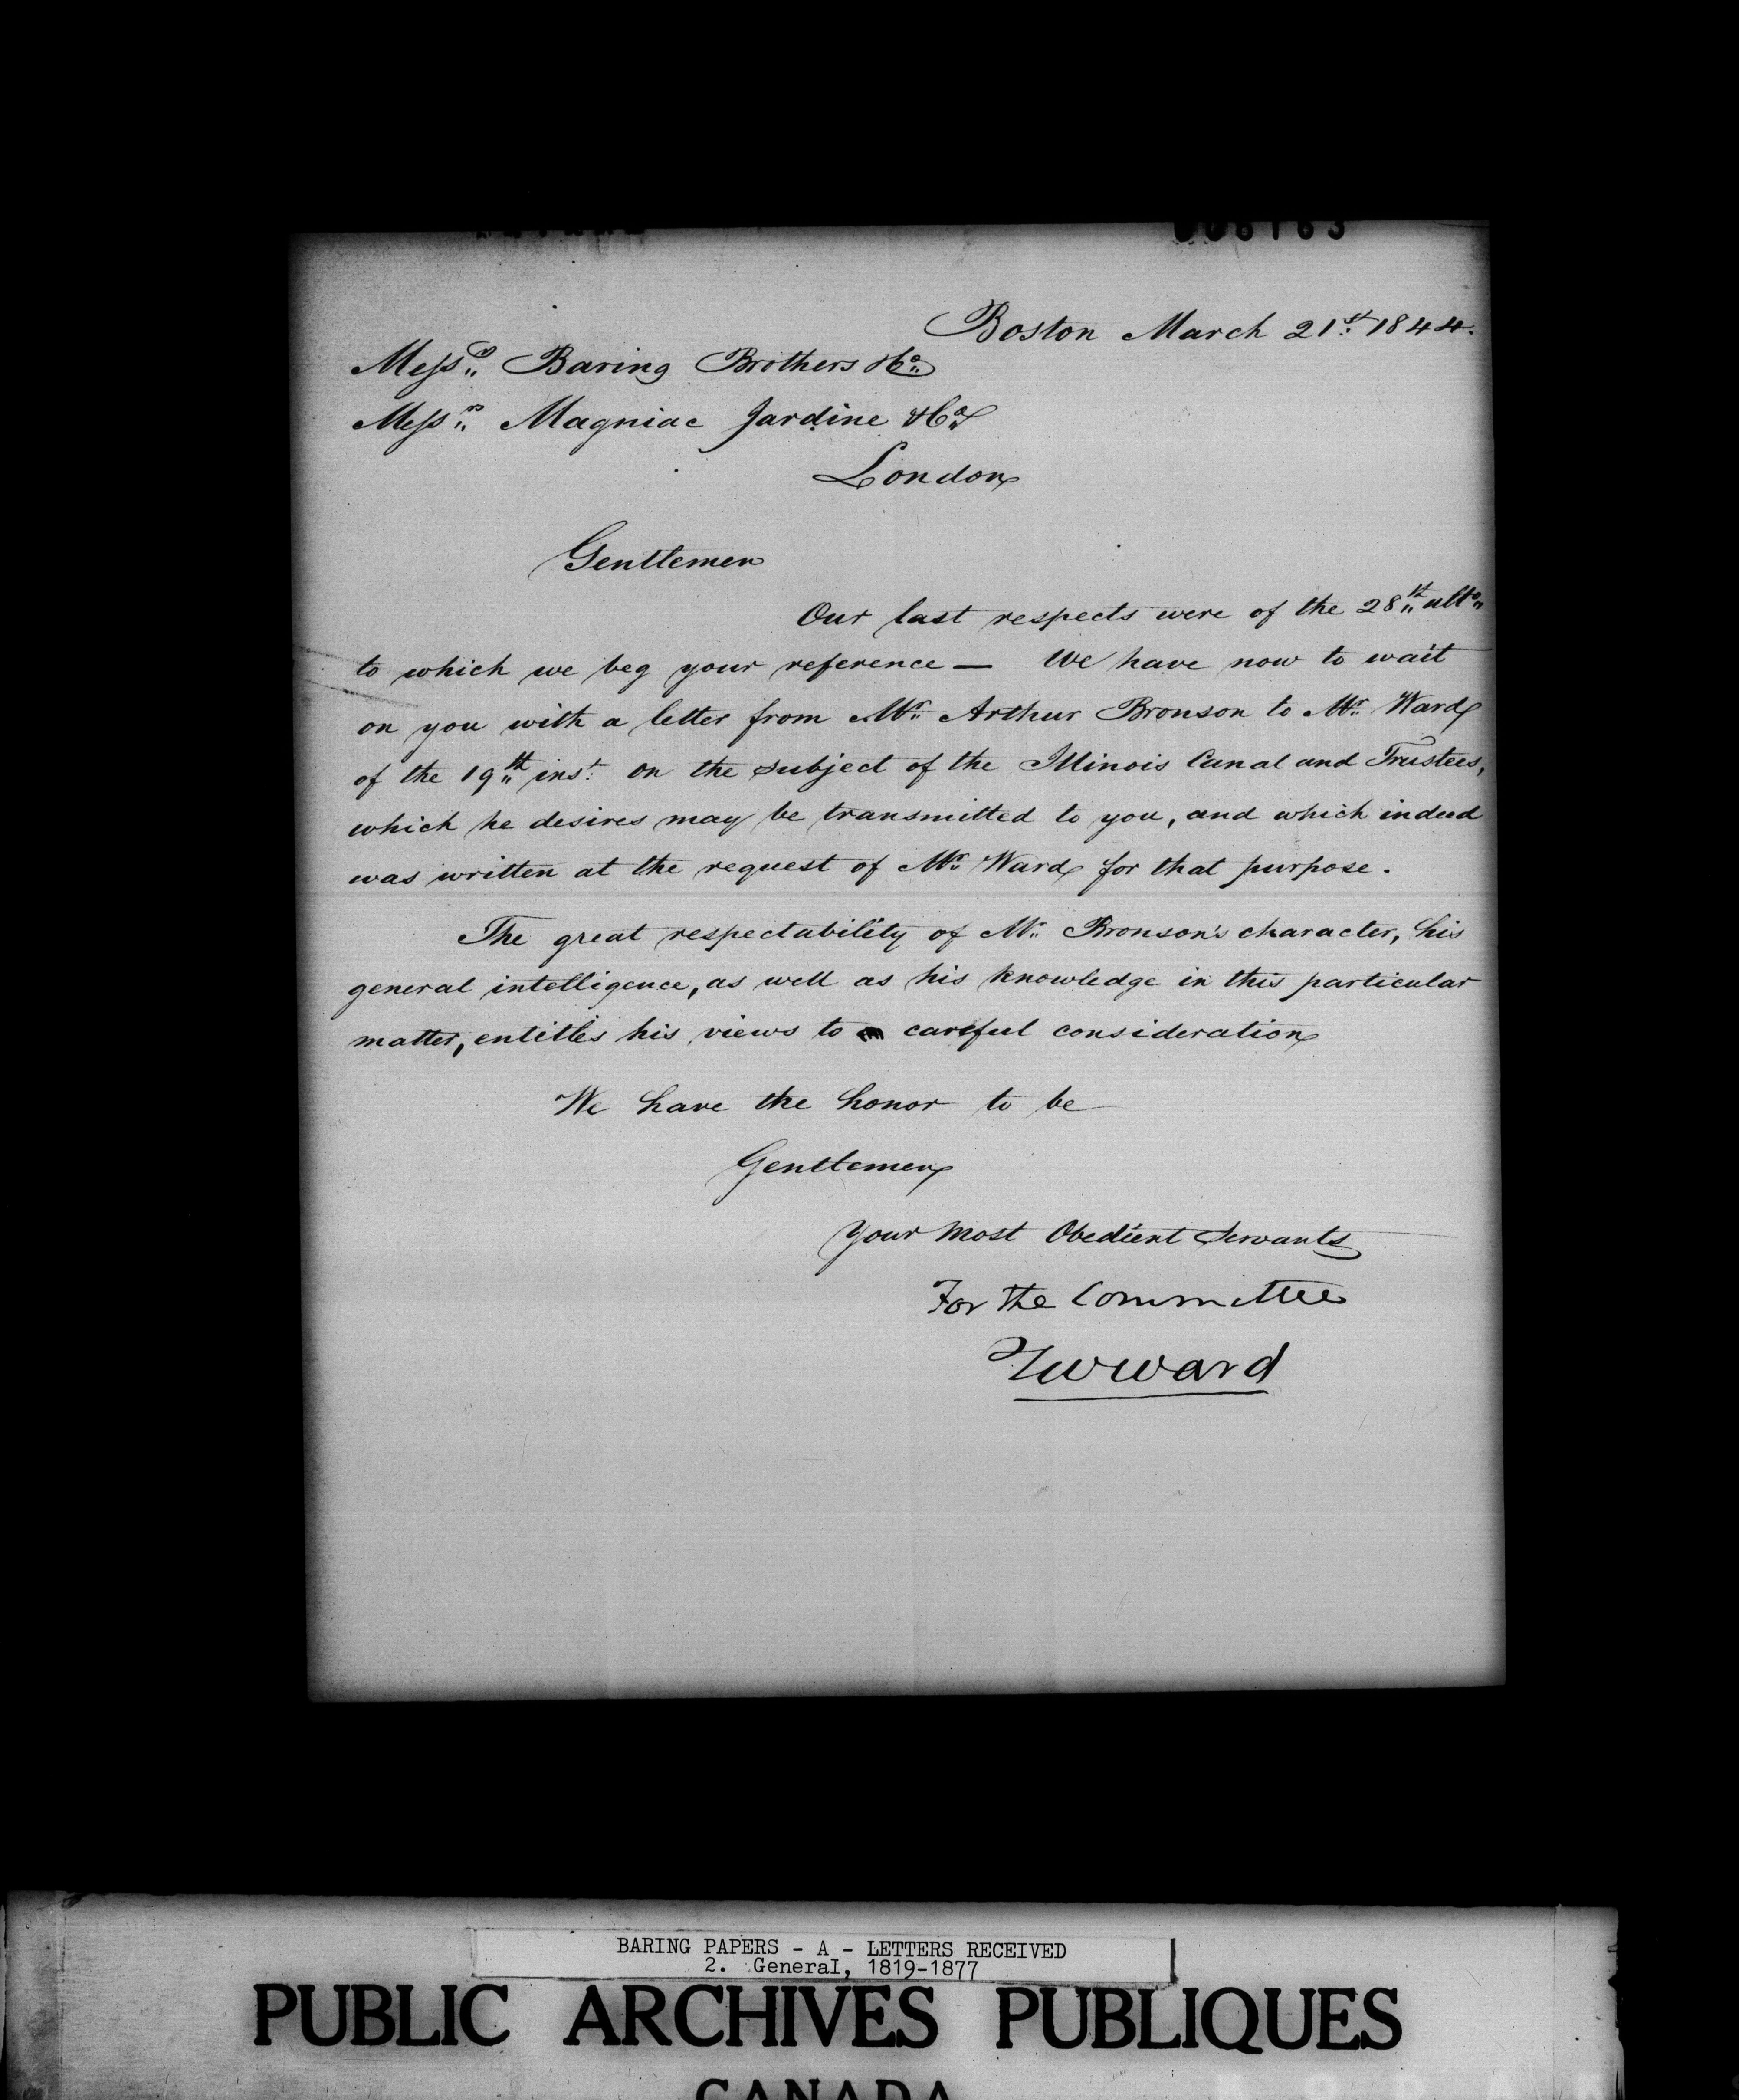 Boston March 21st. 1844.
Messrs. Baring Brothers & Co.
Messrs. Magniac Jardine & Co.
London
Gentlemen
Our last respects were of the 28th ulto.
to which we beg your reference — We have now to wait
on you with a letter from Mr. Arthur Bronson to Mr. Ward
of the 19th inst. on the subject of the Illinois Canal and Trustees,
which he desires may be transmitted to you, and which indeed
was written at the request of Mr. Ward for that purpose.
The great respectability of Mr. Bronson's character, his
general intelligence, as well as his knowledge in this particular
matter, entitles his views to careful consideration
We have the honor to be
Gentlemen
Your Most Obedient Servants
For the Committee
TWWard
BARING PAPERS - A - LETTERS RECEIVED
2. General, 1819-1877
PUBLIC ARCHIVES PUBLIQUES
CANADA